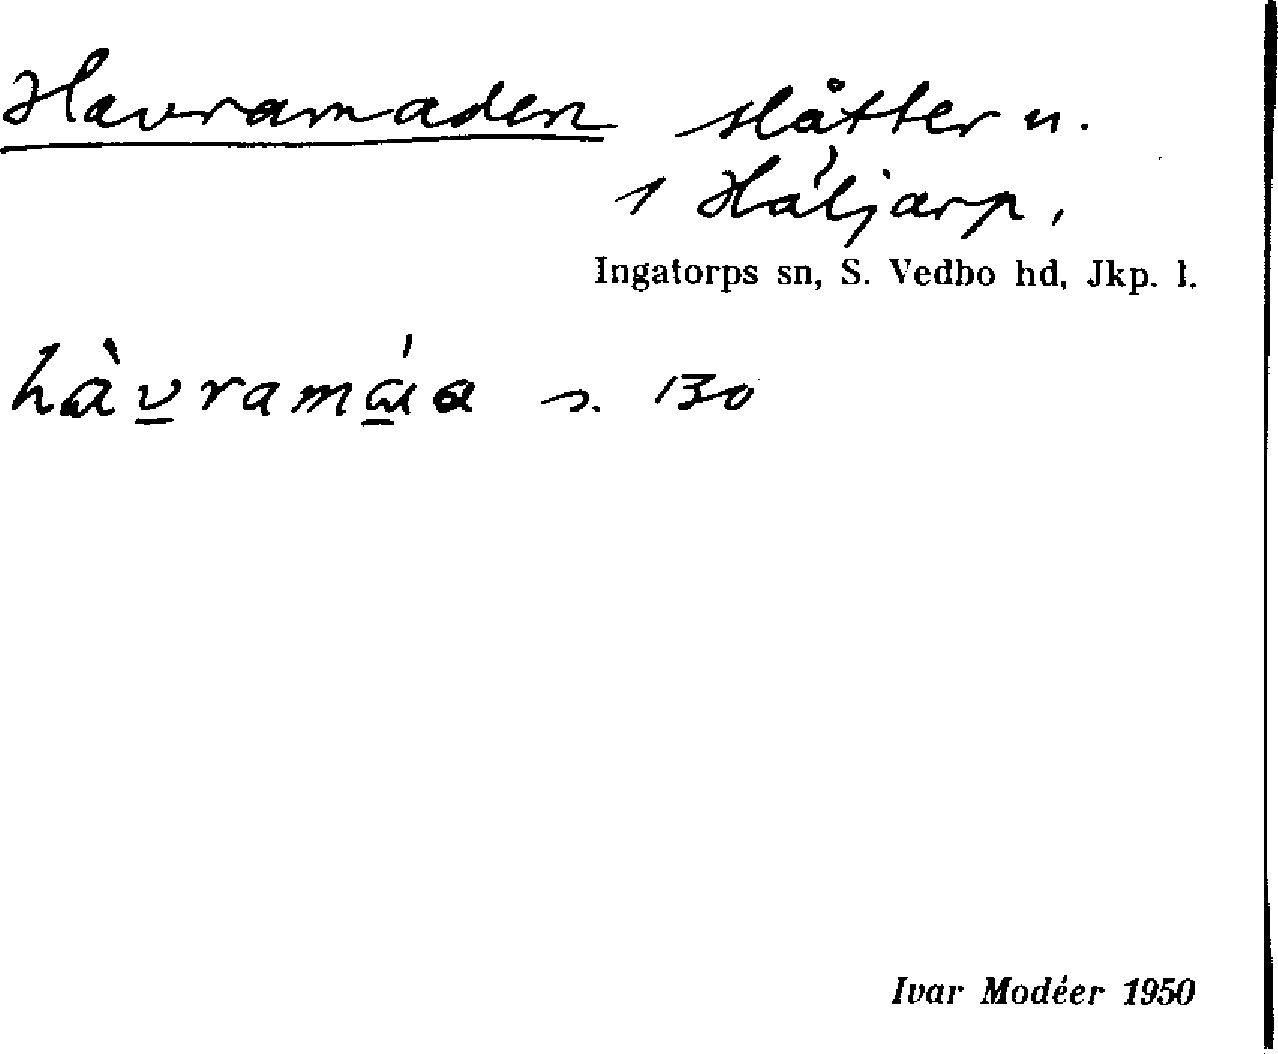 Havramaden slåtter u.
1 Háljarp,
Ingatorps sn, S. Vedbo hd, Jkp. l.
hàvramáa s. 130
Ivar Modéer 1950